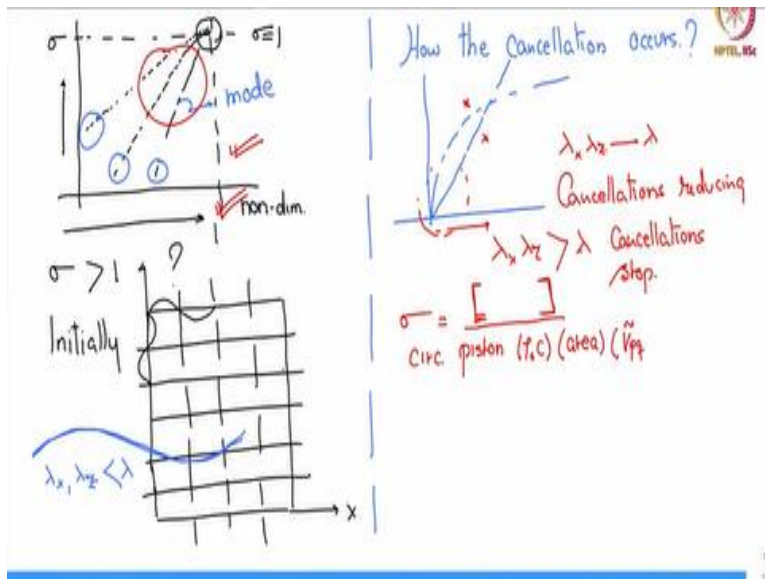 σ
σ=1
mode
non-dim.
σ > 1
?
Initially
λx, λz < λ
x
How the cancellation occurs.?
NPTEL, IISc
x
x
λx λz — λ
Cancellations reducing
λx λz > λ Cancellations
stop.
σ = [ ]
circ. piston (ρ₀c) (area) (Ṽpq